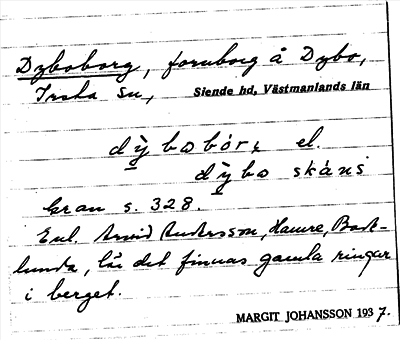 Dyboborg, fornborg å Dybo,
Irsta sn, Siende hd, Västmanlands län
dỳbobór, el.
dỳbo skáns
kran s. 328.
Enl. Arvid Andersson, Hamre, Badelunda, lär det finnas gamla ringar
i berget.
MARGIT JOHANSSON 1937.